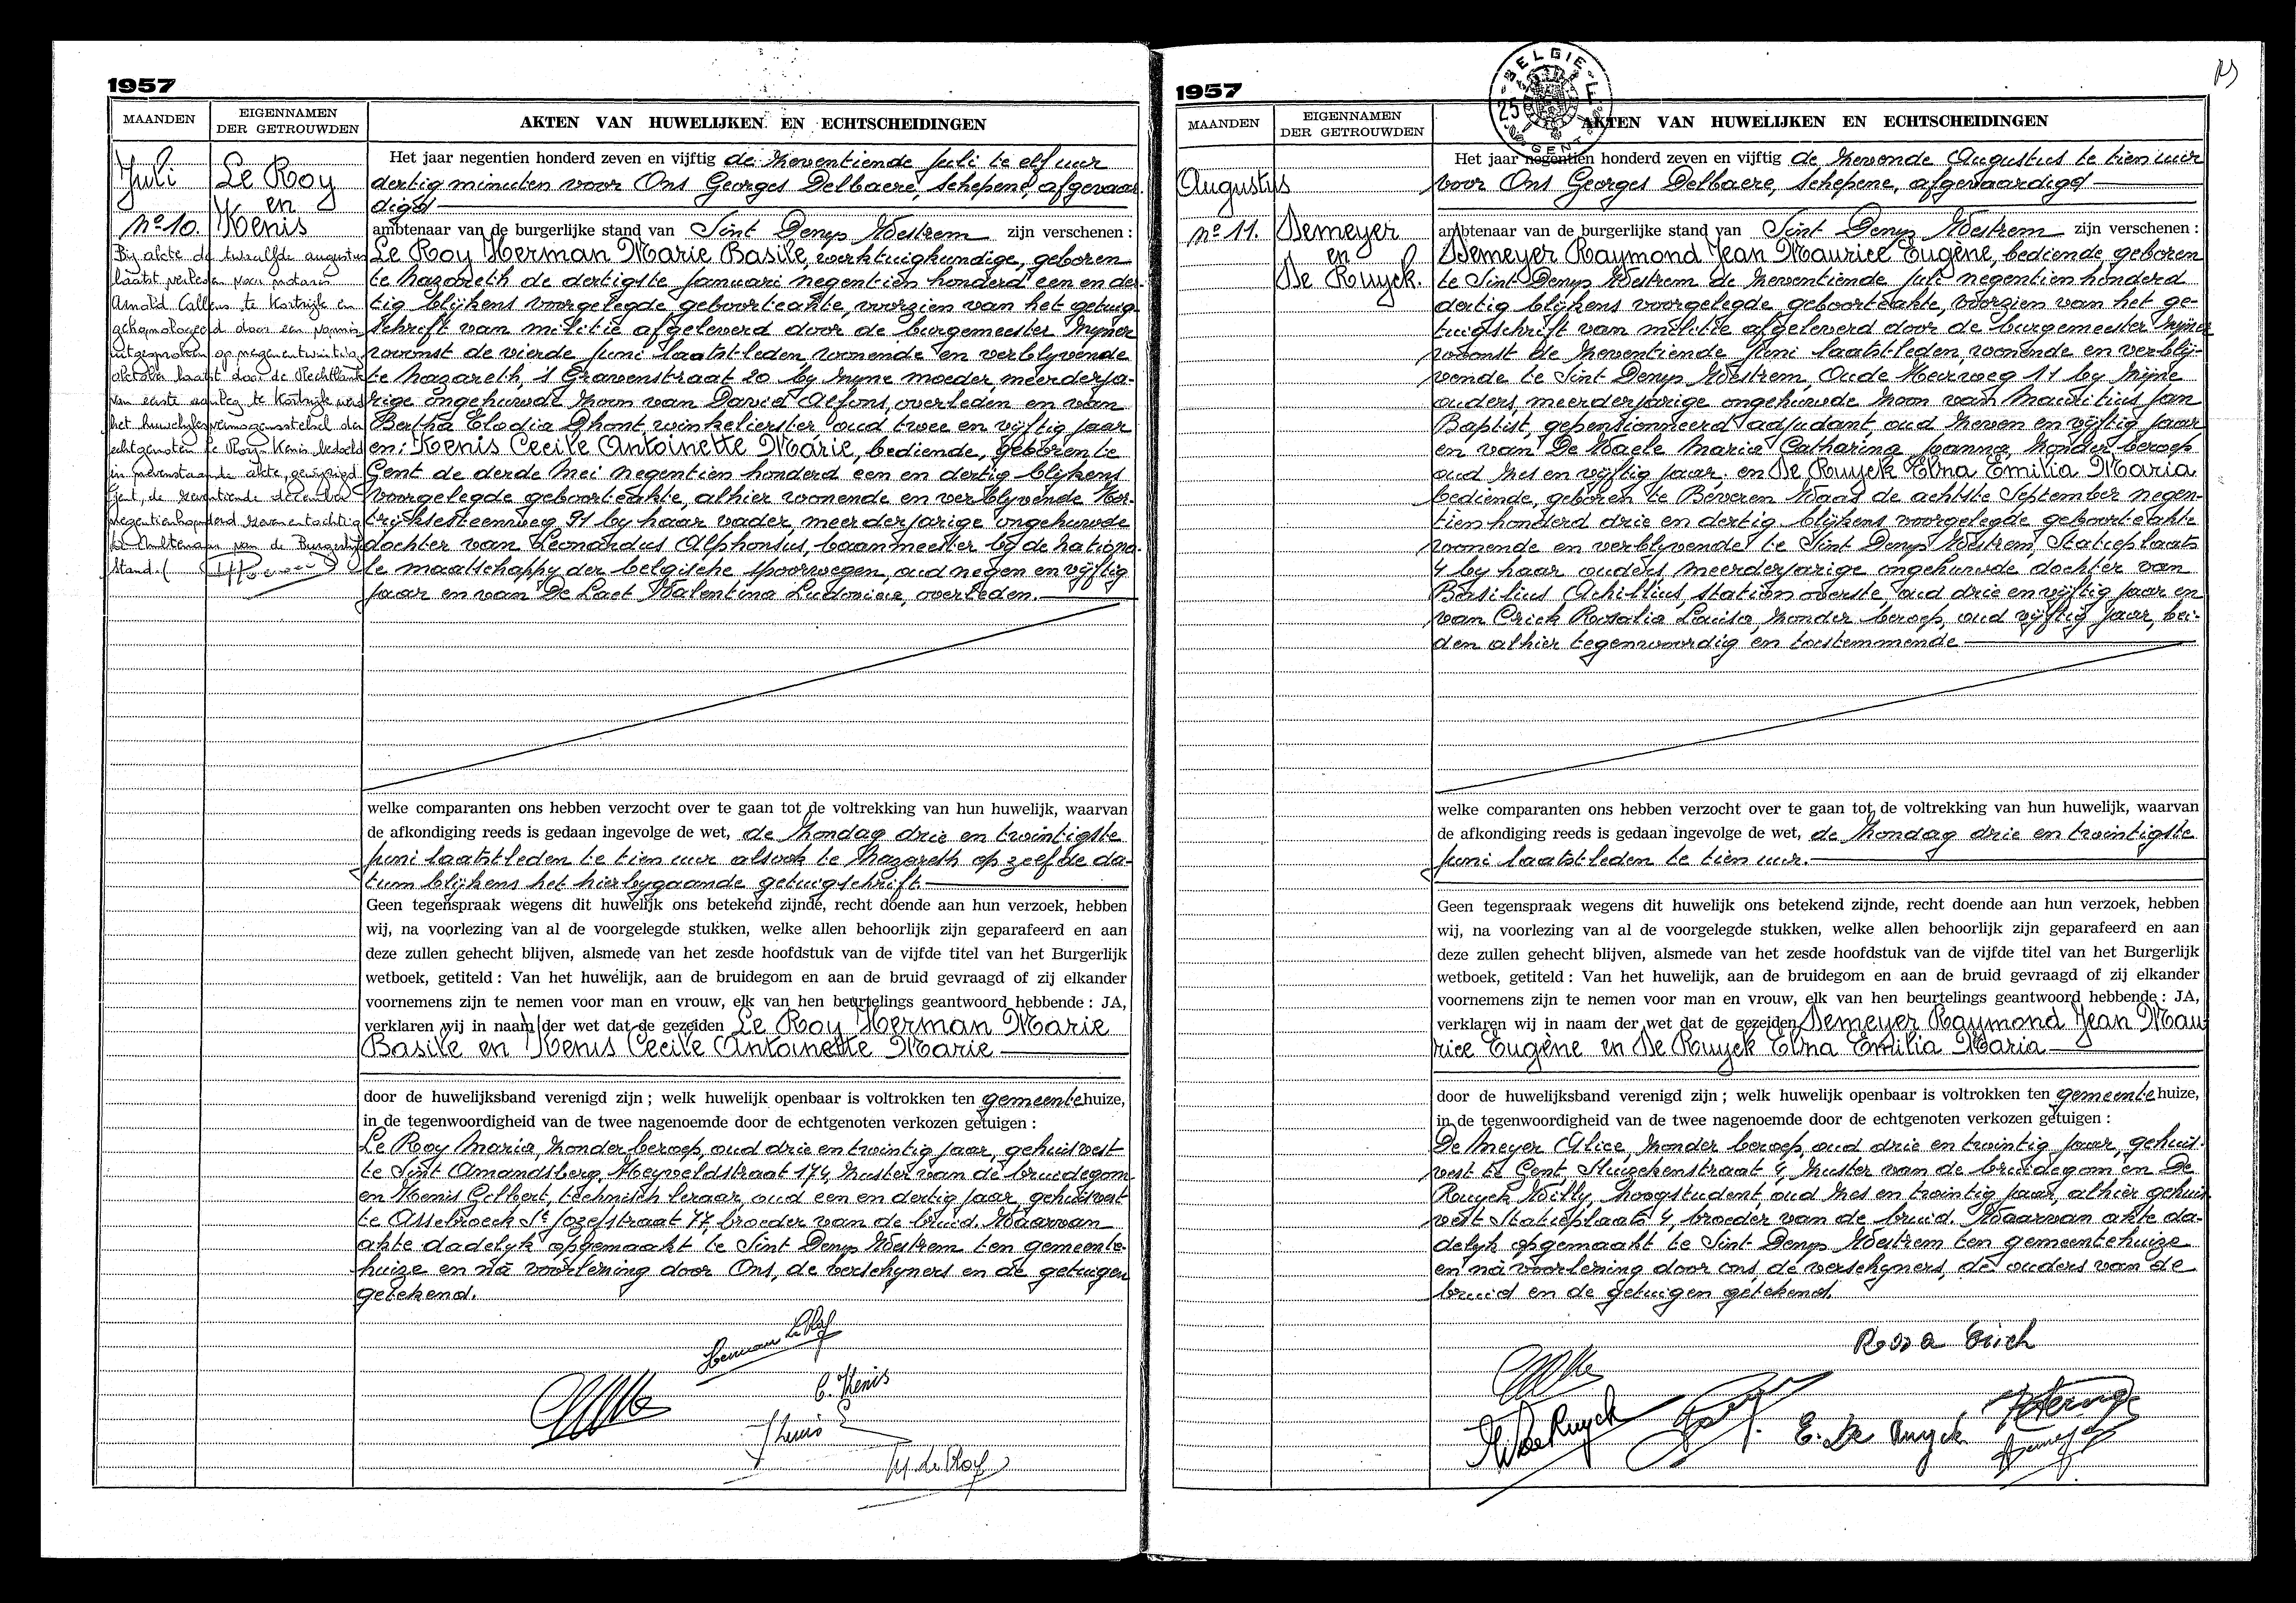 1957
MAANDEN
EIGENNAMEN
DER GETROUWDEN
AKTEN VAN HUWELIJKEN EN ECHTSCHEIDINGEN
Juli
Le Roy
en
nº 10.
Kenis
Bij akte de twaalfde augustus
laatst verleden voor notaris
Arnold Callens te Kortrijk en
gehomologeerd door een vonnis
uitgesproken op negenentwintig
oktober laatst door de Rechtbank
van eerste aanleg te Kortrijk werd
het huwelijksvermogensstelsel der
echtgenoten Le Roy - Kenis bedoeld
in nevenstaande akte, gewijzigd.
Gent, de zeventiende december
negentienhonderd zevenentachtig
De Ambtenaar van de Burgerlijke
Stand.
Het jaar negentien honderd zeven en vijftig de zeventiende Juli te elf uur
dertig minuten voor Ons Georges Delbaere, schepene, afgevaar-
digd
ambtenaar van de burgerlijke stand van Sint Denys Westrem zijn verschenen :
Le Roy Herman Marie Basile, werktuigkundige, geboren
te Nazareth de dertigste Januari negentien honderd een en der-
tig blijkens voorgelegde geboorteakte, voorzien van het getuig-
schrift van militie afgeleverd door de burgemeester zijner
woonst de vierde Juni laatstleden wonende en verblyvende
te Nazareth, 's Gravenstraat 20 by zyne moeder, meerderja-
rige ongehuwde zoon van David Alfons, overleden en van
Bertha Elodia Dhont, winkelierster oud twee en vijftig jaar
en: Kenis Cecile Antoinette Marie, bediende, geboren te
Gent de derde Mei negentien honderd een en dertig blijkens
voorgelegde geboorteakte, alhier wonende en verblyvende Kor-
trijksesteenweg 91 by haar vader, meerderjarige ongehuwde
dochter van Leonardus Alphonsus, baanmeester by de nationa-
le maatschappy der belgische spoorwegen, oud negen en vijftig
jaar en van De Laet Valentina Ludovica, overleden.
welke comparanten ons hebben verzocht over te gaan tot de voltrekking van hun huwelijk, waarvan
de afkondiging reeds is gedaan ingevolge de wet, de Zondag drie en twintigste
Juni laatstleden te tien uur alsook te Nazareth op zelfde da-
tum blijkens het hierbygaande getuigschrift.
Geen tegenspraak wegens dit huwelijk ons betekend zijnde, recht doende aan hun verzoek, hebben
wij, na voorlezing van al de voorgelegde stukken, welke allen behoorlijk zijn geparafeerd en aan
deze zullen gehecht blijven, alsmede van het zesde hoofdstuk van de vijfde titel van het Burgerlijk
wetboek, getiteld : Van het huwelijk, aan de bruidegom en aan de bruid gevraagd of zij elkander
voornemens zijn te nemen voor man en vrouw, elk van hen beurtelings geantwoord hebbende : JA,
verklaren wij in naam der wet dat de gezeiden Le Roy Herman Marie
Basile en Kenis Cecile Antoinette Marie
door de huwelijksband verenigd zijn ; welk huwelijk openbaar is voltrokken ten gemeentehuize,
in de tegenwoordigheid van de twee nagenoemde door de echtgenoten verkozen getuigen :
Le Roy Maria, zonder beroep, oud drie en twintig jaar, gehuisvest
te Sint Amandsberg, Heyveldstraat 174, zuster van de bruidegom
en Kenis Gilbert, technisch leraar, oud een en dertig jaar, gehuisvest
te Assebroeck St Jozefstraat 77, broeder van de bruid. Waarvan
akte dadelyk opgemaakt te Sint Denys Westrem ten gemeente-
huize en na voorlezing door Ons, de verschyners en de getuigen
getekend.
Herman Le Roy
C. Kenis
M. Le Roy
1957
BELGIE
25 F
GENT
MAANDEN
EIGENNAMEN
DER GETROUWDEN
AKTEN VAN HUWELIJKEN EN ECHTSCHEIDINGEN
Augustus
nº 11.
Demeyer
en
De Ruyck.
Het jaar negentien honderd zeven en vijftig de zevende Augustus te tien uur
voor Ons Georges Delbaere, schepene, afgevaardigd
ambtenaar van de burgerlijke stand van Sint Denys Westrem zijn verschenen :
Demeyer Raymond Jean Maurice Eugène, bediende, geboren
te Sint Denys Westrem de zeventiende Juli negentien honderd
dertig blijkens voorgelegde geboorteakte, voorzien van het ge-
tuigschrift van militie afgeleverd door de burgemeester zijner
woonst de zeventiende Juni laatstleden wonende en verblij-
vende te Sint Denys Westrem, Oude Heirweg 11 by zijne
ouders, meerderjarige ongehuwde zoon van Mauritius Jan
Baptist, gepensionneerd adjudant, oud zeven en vijftig jaar
en van De Waele Maria Catharina Joanna, zonder beroep
oud zes en vijftig jaar. en De Ruyck Elna Emilia Maria
bediende, geboren te Beveren Waas de achtste September negen-
tien honderd drie en dertig blijkens voorgelegde geboorteakte
wonende en verblyvende te Sint Denys Westrem, Statieplaats
4 by haar ouders meerderjarige ongehuwde dochter van
Basilius Achillius, station overste, oud drie en vijftig jaar en
van Crick Rosalia Louisa, zonder beroep, oud vijftig jaar, bei-
den alhier tegenwoordig en toestemmende
welke comparanten ons hebben verzocht over te gaan tot de voltrekking van hun huwelijk, waarvan
de afkondiging reeds is gedaan ingevolge de wet, de Zondag drie en twintigste
Juni laatstleden te tien uur.
Geen tegenspraak wegens dit huwelijk ons betekend zijnde, recht doende aan hun verzoek, hebben
wij, na voorlezing van al de voorgelegde stukken, welke allen behoorlijk zijn geparafeerd en aan
deze zullen gehecht blijven, alsmede van het zesde hoofdstuk van de vijfde titel van het Burgerlijk
wetboek, getiteld : Van het huwelijk, aan de bruidegom en aan de bruid gevraagd of zij elkander
voornemens zijn te nemen voor man en vrouw, elk van hen beurtelings geantwoord hebbende : JA,
verklaren wij in naam der wet dat de gezeiden Demeyer Raymond Jean Mau
rice Eugène en De Ruyck Elna Emilia Maria
door de huwelijksband verenigd zijn ; welk huwelijk openbaar is voltrokken ten gemeentehuize,
in de tegenwoordigheid van de twee nagenoemde door de echtgenoten verkozen getuigen :
De Meyer Alice, zonder beroep, oud drie en twintig jaar, gehuis-
vest te Gent, Sluizekenstraat 4, zuster van de bruidegom en De
Ruyck Willy, hoogstudent, oud zes en twintig jaar, alhier gehuis-
vest Statieplaats 4, broeder van de bruid. Waarvan akte da-
delyk opgemaakt te Sint Denys Westrem ten gemeentehuize
en na voorlezing door ons, de verschyners, de ouders van de
bruid en de getuigen getekend.
Rosa Crick
W De Ruyck
E. De Ruyck
Demeyer